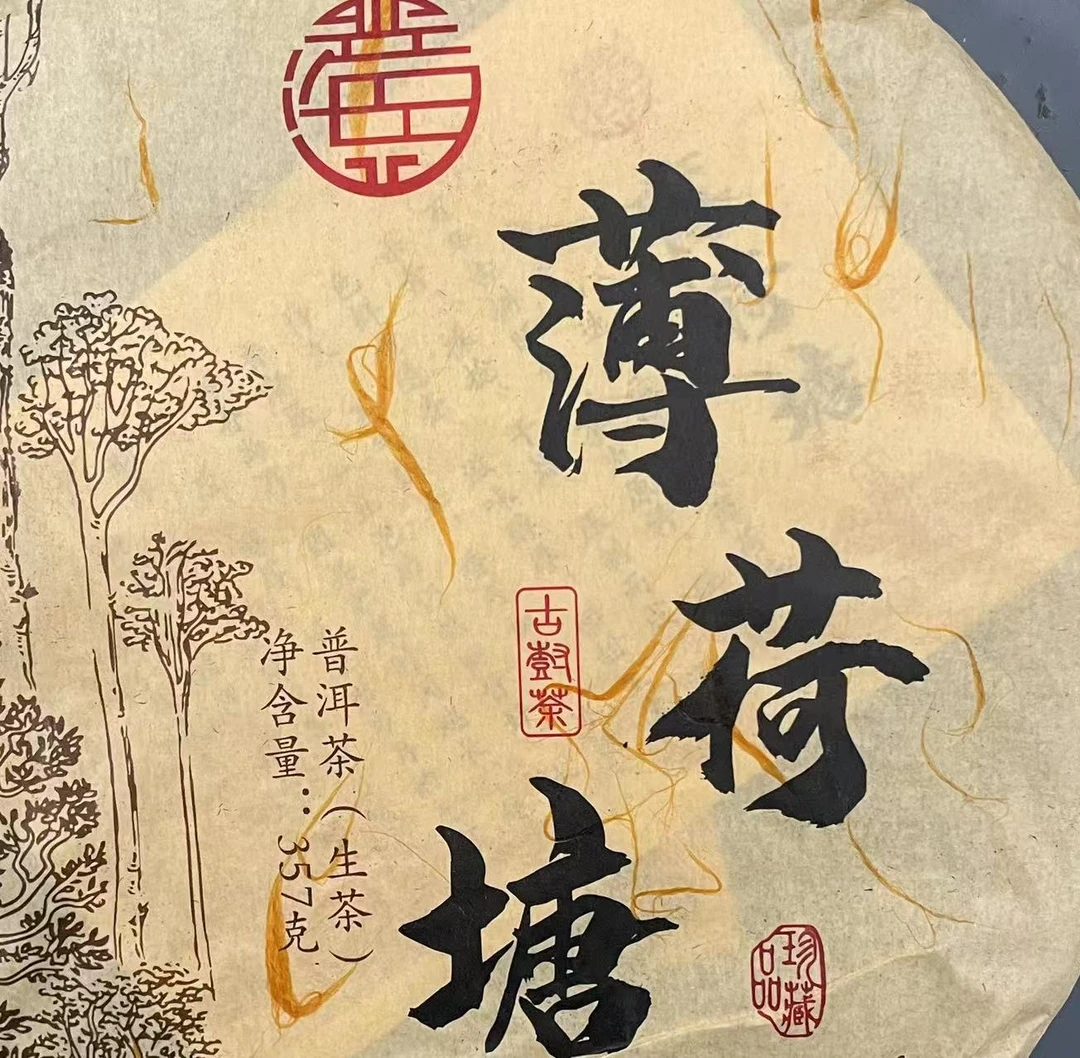 薄荷塘
古樹茶
普洱茶（生茶）
净含量：357克
珍藏
品